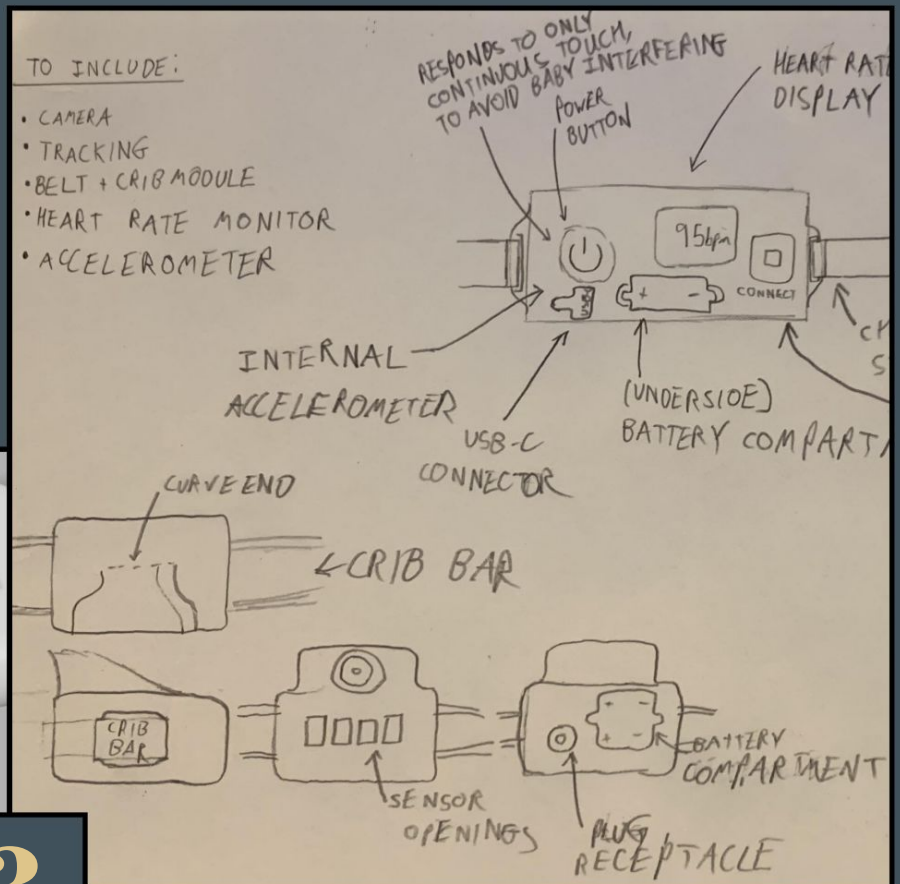 TO INCLUDE:
• CAMERA
• TRACKING
• BELT + CRIB MODULE
• HEART RATE MONITOR
• ACCELEROMETER
RESPONDS TO ONLY
CONTINUOUS TOUCH,
TO AVOID BABY INTERFERING
POWER
BUTTON
HEART RAT
DISPLAY
95bpm
CONNECT
+ -
INTERNAL
ACCELEROMETER
USB-C
CONNECTOR
(UNDERSIDE)
BATTERY COMPART
CURVE END
CRIB BAR
CRIB
BAR
SENSOR
OPENINGS
- -
+ -
BATTERY
COMPARTMENT
PLUG
RECEPTACLE
2